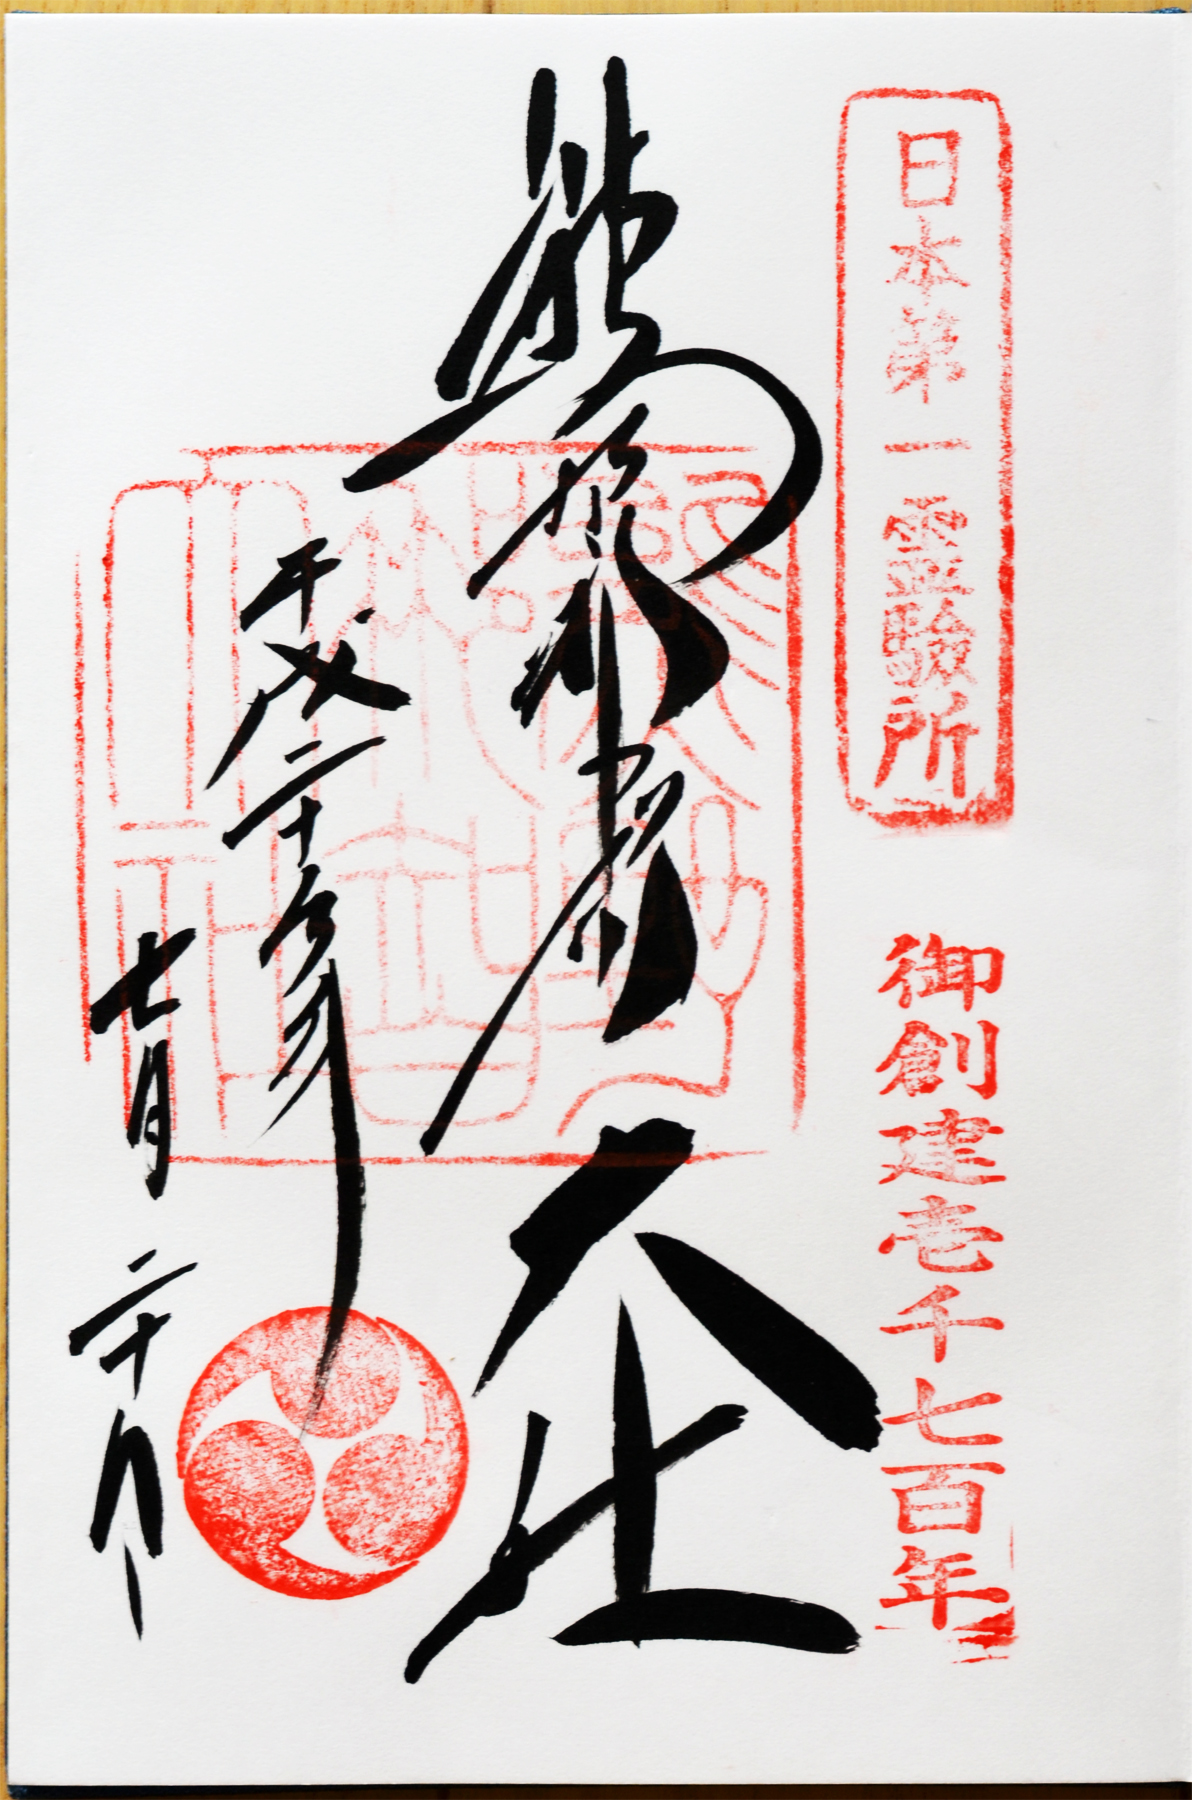 日本第一霊験所
御創建壱千七百年
熊野那智大社
平成二十九年
七月二十日